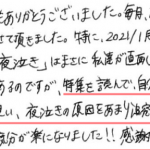 もありがとうございました。毎月、
せて頂きました。特に、2021/1月
夜泣き」はまさに私達が直面し
あるのですが、特集を読んで、自
い、夜泣きの原因をあまり追究
気分が楽になりました!! 感謝